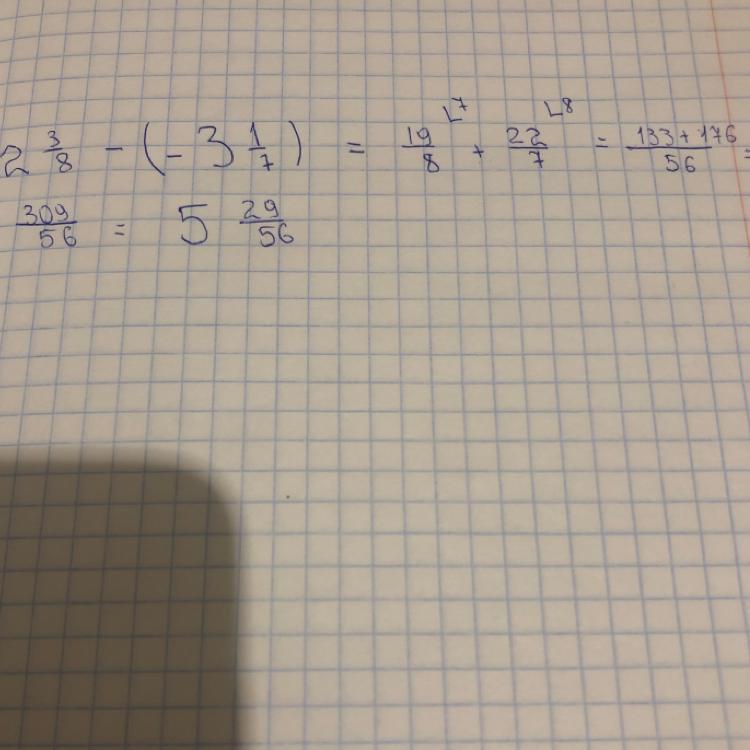 2 3/8 - (-3 1/7) = 19/8 ∟7 + 22/7 ∟8 = 133+176/56 =
309/56 = 5 29/56